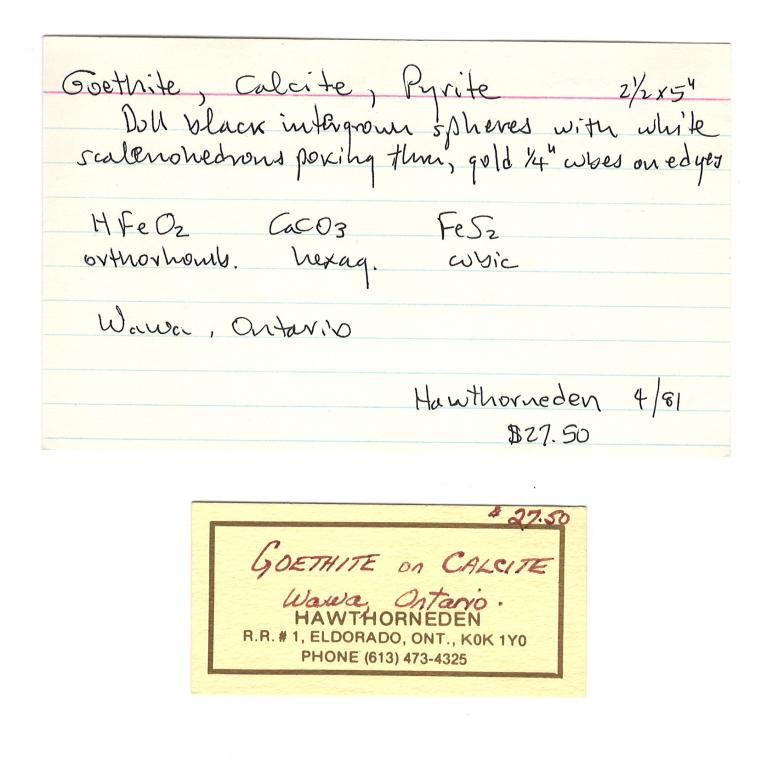 Goethite, Calcite, Pyrite 2 1/2 x 5"
Dull black intergrown spheres with white
scalenohedrons poking thru, gold 1/4" cubes on edges
HFeO2 CaCO3 FeS2
orthorhomb. hexag. cubic
Wawa, Ontario
Hawthorneden 4/81
$27.50
$ 27.50
GOETHITE on CALCITE
Wawa, Ontario.
HAWTHORNEDEN
R.R. # 1, ELDORADO, ONT., K0K 1Y0
PHONE (613) 473-4325